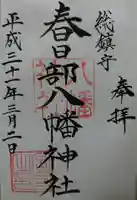 奉拝
総鎮守
春日部八幡神社
平成三十一年三月二日